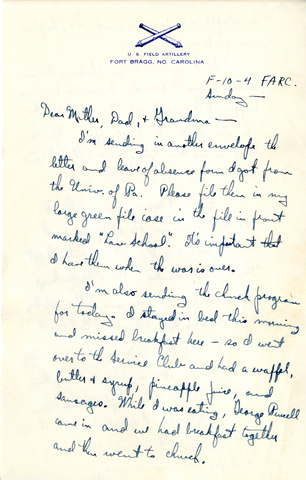 U. S. FIELD ARTILLERY
FORT BRAGG, NO. CAROLINA
F-10-4 FARC.
Sunday —
Dear Mother, Dad, & Grandma —
I'm sending in another envelope the
letter and leave of absence form I got from
the Univ. of Pa. Please file them in my
large green file case in the file in front
marked "Law School". It's important that
I have them when the war is over.
I'm also sending the church program
for today. I stayed in bed this morning
and missed breakfast here — so I went
over to the Service Club and had a waffle,
butter & syrup, pineapple juice, and
sausages. While I was eating, George Russell
came in and we had breakfast together
and then went to church.